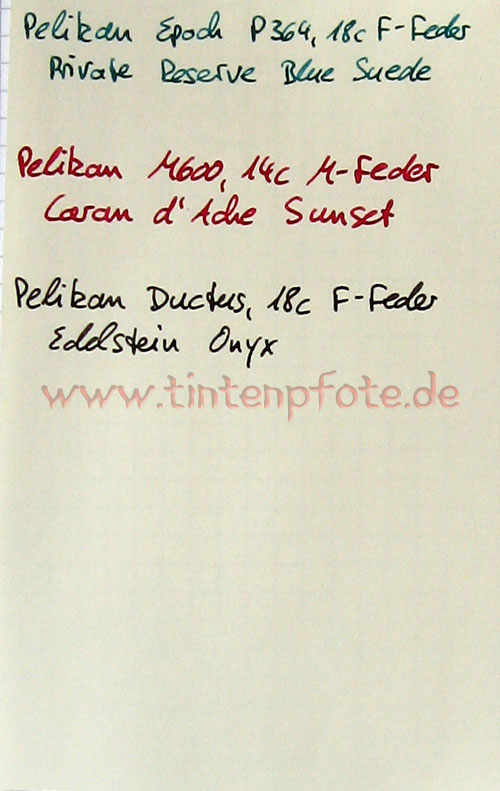 Pelikan Epoch P364, 18c F-Feder
Private Reserve Blue Suede
Pelikan M600, 14c M-Feder
Caran d'Ache Sunset
Pelikan Ductus, 18c F-Feder
Edelstein Onyx
www.tintenpfote.de